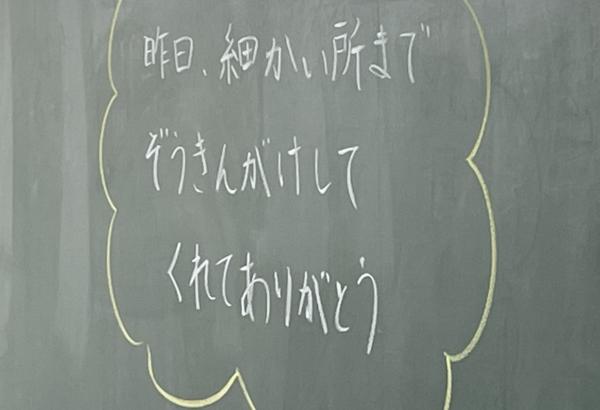 昨日、細かい所まで
ぞうきんがけして
くれてありがとう